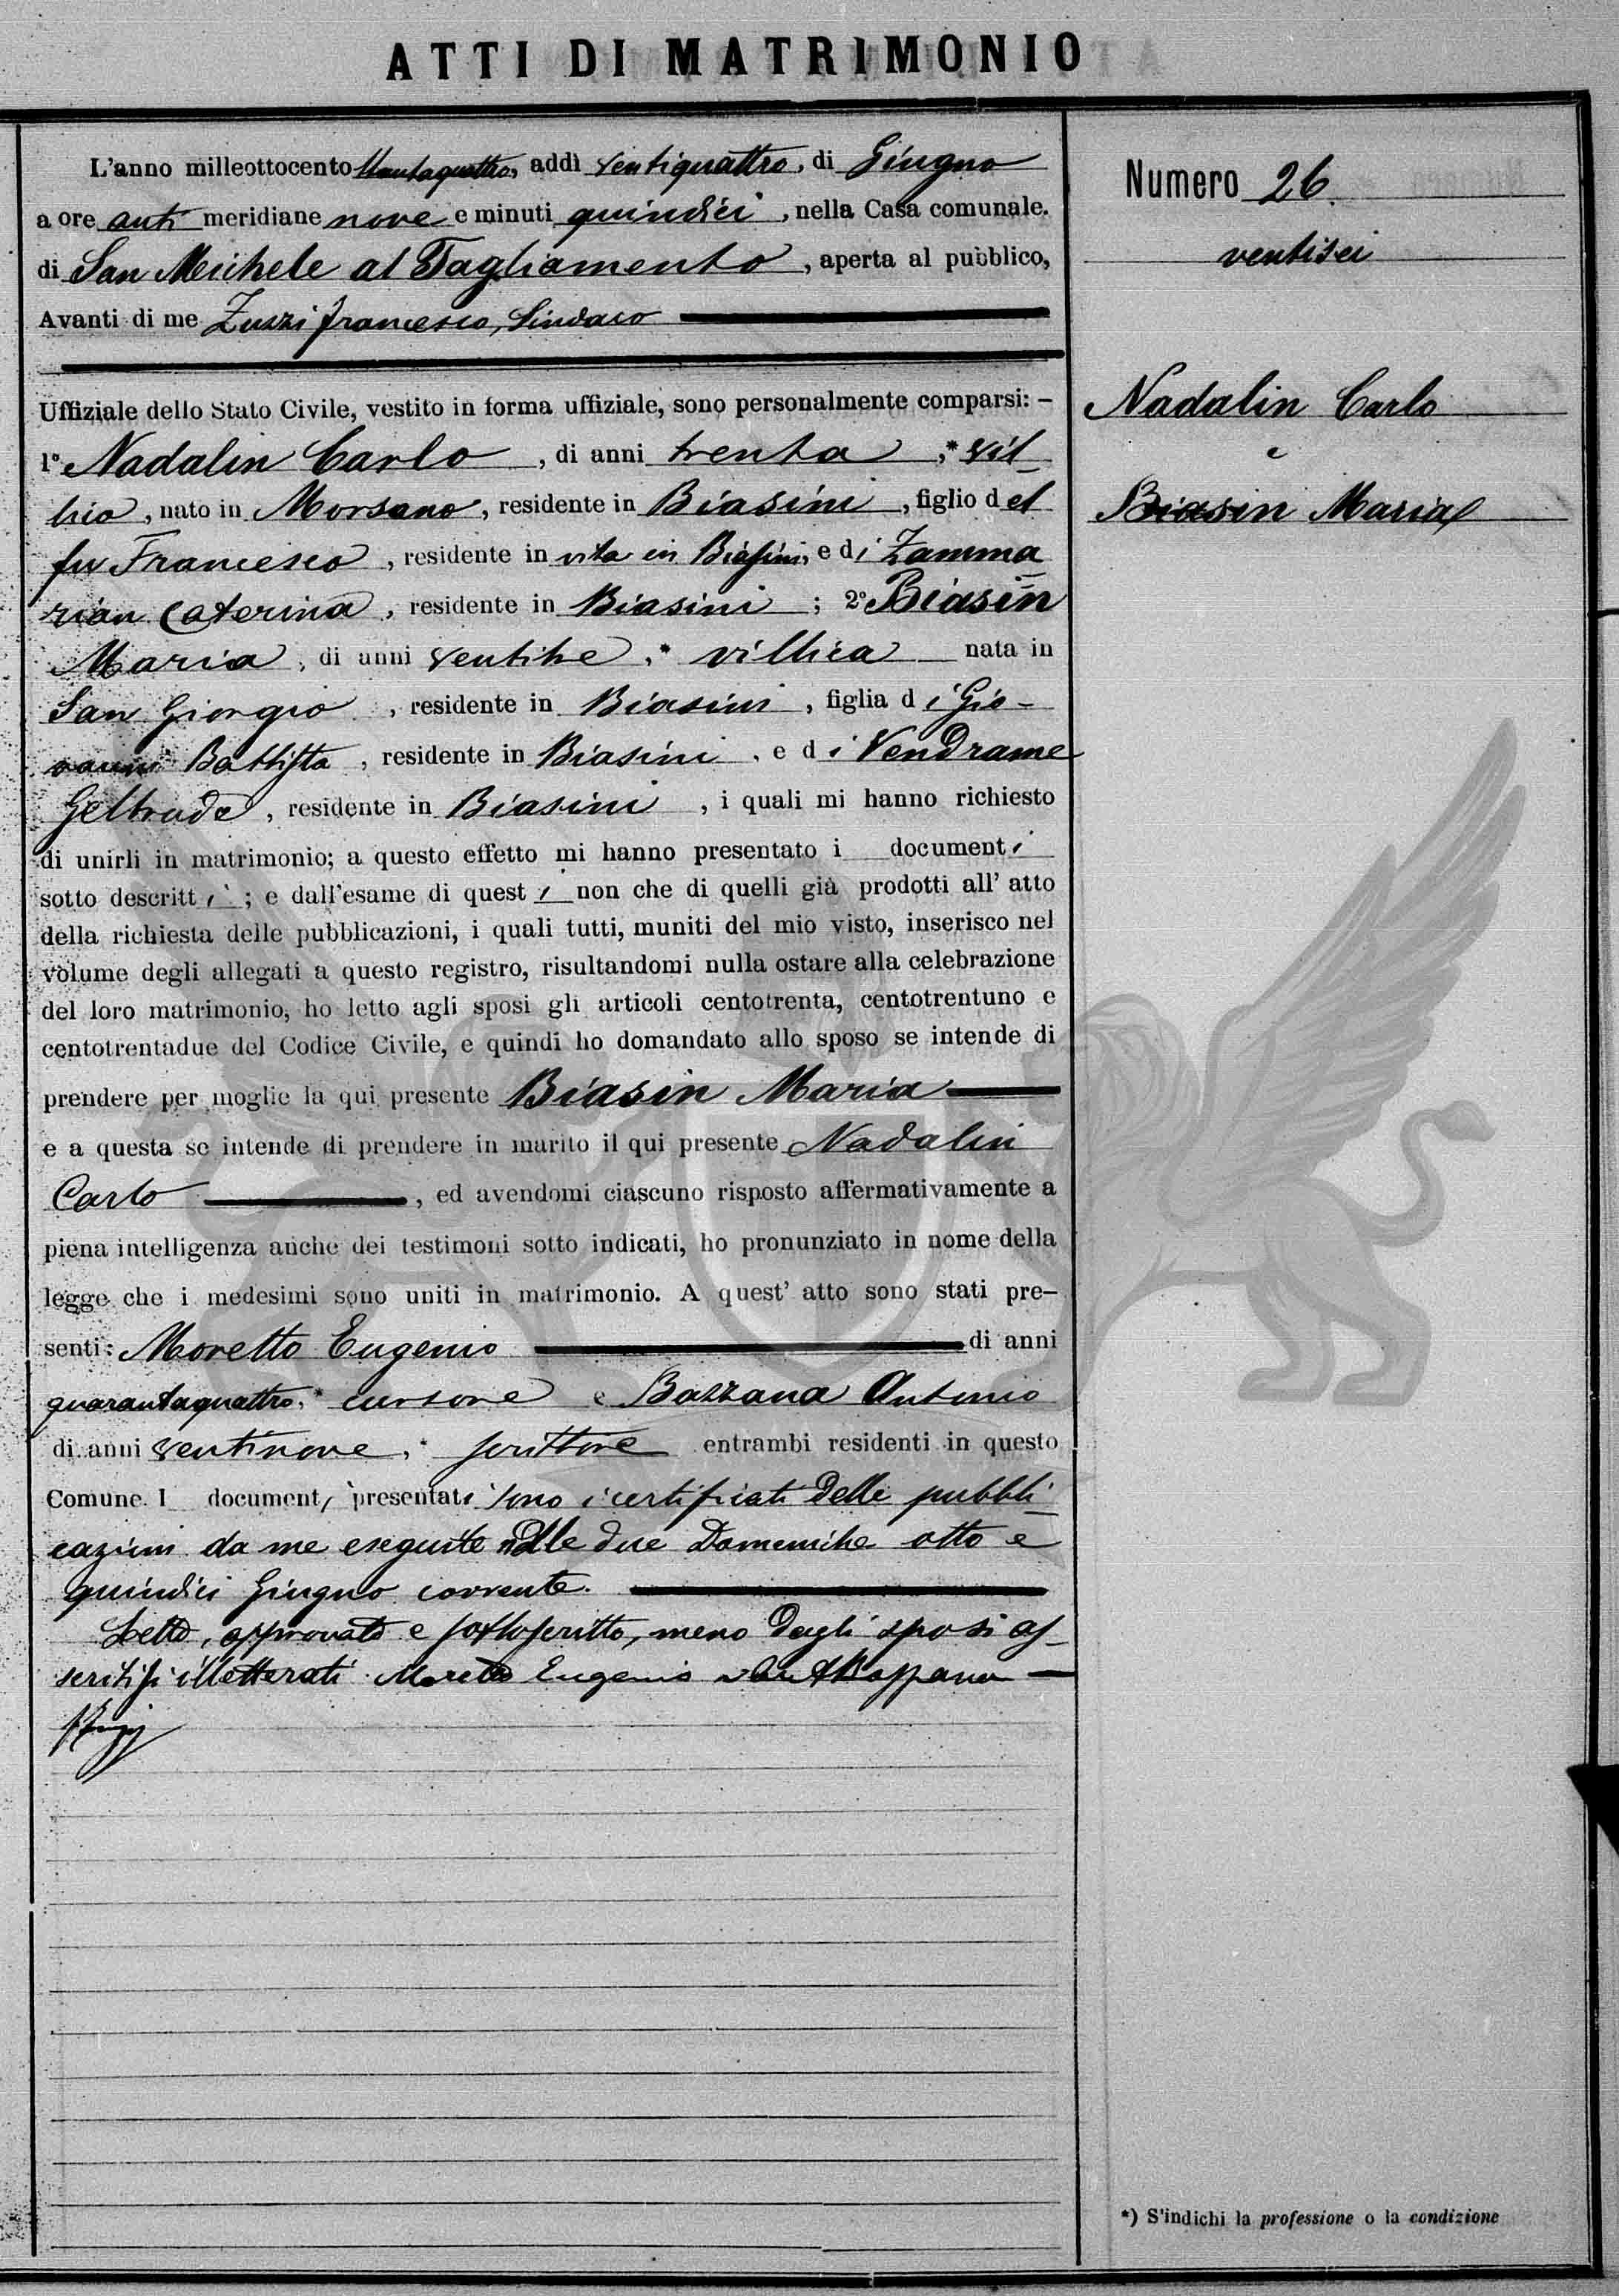 ATTI DI MATRIMONIO
L'anno milleottocento ottantaquattro, addì ventiquattro, di Giugno
a ore anti meridiane nove e minuti quindici, nella Casa comunale.
di San Michele al Tagliamento, aperta al pubblico,
Avanti di me Zuzzi Francesco, Sindaco
Uffiziale dello Stato Civile, vestito in forma uffiziale, sono personalmente comparsi: –
1º Nadalin Carlo, di anni trenta, * vil-
lico, nato in Morsano, residente in Biasini, figlio del
fu Francesco, residente in vita in Biasini, e di Zamma
rian Caterina, residente in Biasini; 2º Biasin
Maria, di anni ventitre, * villica nata in
San Giorgio, residente in Biasini, figlia di Gio-
vanni Battista, residente in Biasini, e di Vendrame
Geltrude, residente in Biasini, i quali mi hanno richiesto
di unirli in matrimonio; a questo effetto mi hanno presentato i documenti
sotto descritti; e dall'esame di questi non che di quelli già prodotti all'atto
della richiesta delle pubblicazioni, i quali tutti, muniti del mio visto, inserisco nel
volume degli allegati a questo registro, risultandomi nulla ostare alla celebrazione
del loro matrimonio, ho letto agli sposi gli articoli centotrenta, centotrentuno e
centotrentadue del Codice Civile, e quindi ho domandato allo sposo se intende di
prendere per moglie la qui presente Biasin Maria
e a questa se intende di prendere in marito il qui presente Nadalin
Carlo, ed avendomi ciascuno risposto affermativamente a
piena intelligenza anche dei testimoni sotto indicati, ho pronunziato in nome della
legge che i medesimi sono uniti in matrimonio. A quest' atto sono stati pre–
senti: Moretto Eugenio di anni
quarantaquattro, * cursore e Bazzana Antonio
di anni ventinove, * scrittore entrambi residenti in questo
Comune. I documenti presentati sono i certificati delle pubbli-
cazioni da me eseguite nelle due Domeniche otto e
quindici Giugno corrente.
Letto, approvato e sottoscritto, meno dagli sposi as-
seritisi illetterati. Moretto Eugenio
Numero 26.
ventisei
Nadalin Carlo
e
Biasin Maria
*) S'indichi la professione o la condizione